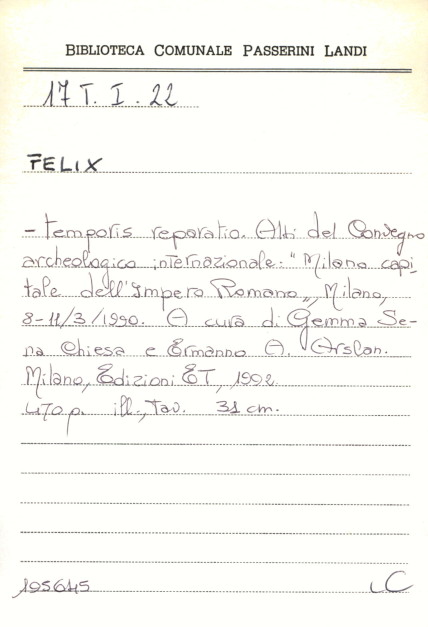 BIBLIOTECA COMUNALE PASSERINI LANDI
17 T. I. 22
FELIX
- temporis reparatio. Atti del Convegno
archeologico internazionale: "Milano capi-
tale dell'Impero Romano", Milano,
8-11/3/1990. A cura di Gemma Se-
na Chiesa e Ermanno A. Arslan.
Milano, Edizioni ET, 1992.
470 p. ill., tav. 31 cm.
195645 iC